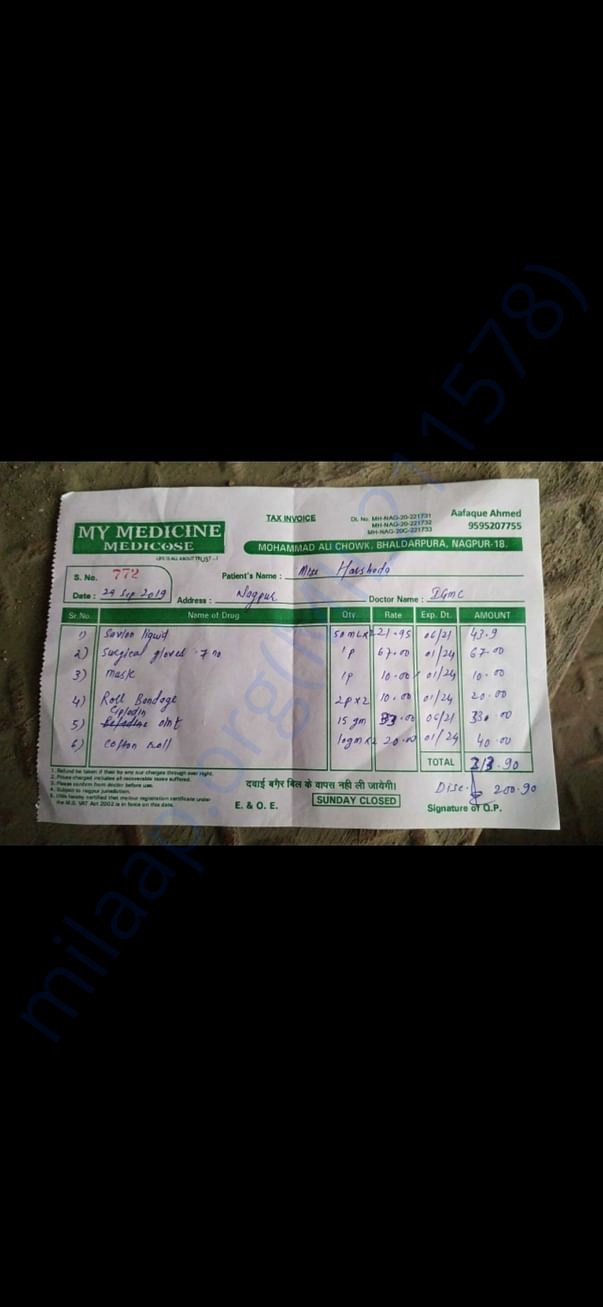 TAX INVOICE
DL No. MH-NAG-20-221731
MH-NAG-20-221732
MH-NAG-20C-221733
Aafaque Ahmed
9595207755
MY MEDICINE
MEDICOSE
LIFE IS ALL ABOUT TRUST...!
MOHAMMAD ALI CHOWK, BHALDARPURA, NAGPUR-18.
S. No. 772
Patient's Name : Miss Harshada
Date : 29 Sep 2019
Address : Nagpur
Doctor Name : IGMC
Sr.No. Name of Drug Qty. Rate Exp. Dt. AMOUNT
1) Savlon liquid 50 ml x2 21.95 06/21 43.9
2) Surgical gloves 7 no 1p 67.00 01/24 67.00
3) mask 1p 10.00 01/24 10.00
4) Roll Bandage 2p x2 10.00 01/24 20.00
5) Cipladin oint 15 gm 33.00 06/21 33.00
6) cotton roll 10gm x2 20.00 01/24 40.00
TOTAL 213.90
Disc. 200.90
1. Refund be taken if their by any sur charges through over right.
2. Prices charged includes all recoverable taxes suffered.
3. Please confirm from doctor before use.
4. Subject to nagpur jurisdiction.
5. I/We hereby certified that me/our registration certificate under
the M.S. VAT Act 2002 is in force on this date.
दवाई बगैर बिल के वापस नही ली जायेगी।
E. & O. E.
SUNDAY CLOSED
Signature of Q.P.
milaap.org(MLP115578)